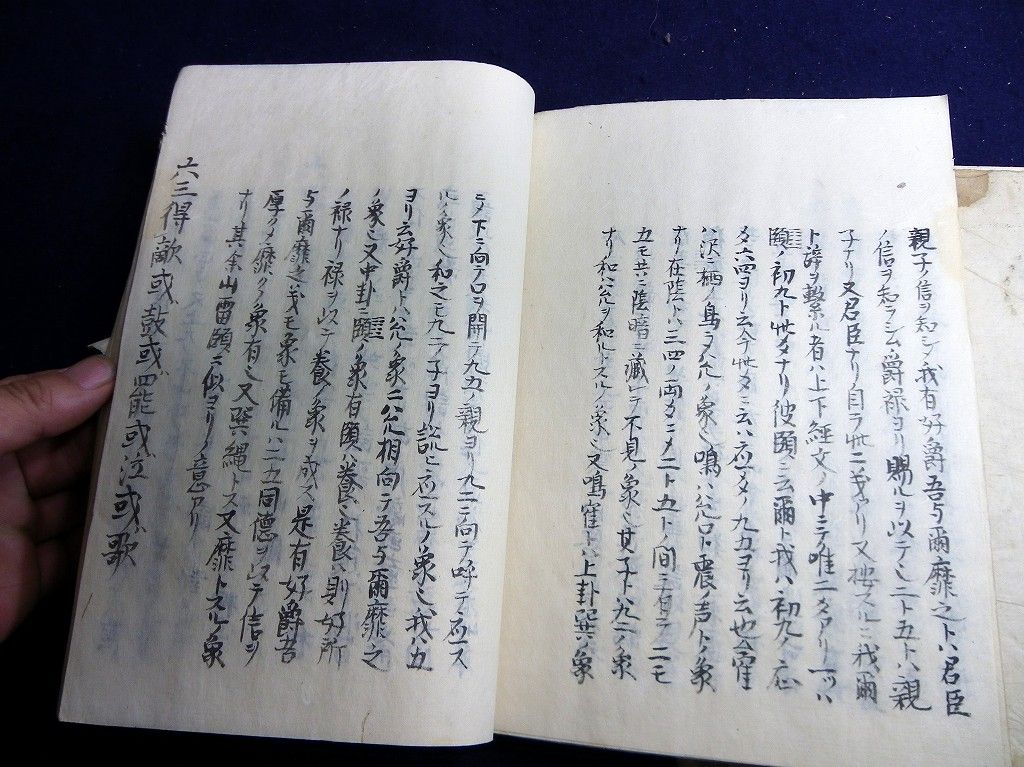 親子ノ信ヲ知シ我有好爵吾与爾靡之トハ君臣
ノ信ヲ知ラシム爵禄ヨリ賜ルヲ以テ二ト五トハ親
子ナリ又君臣ナリ自ラ此二義アリ又按スルニ我爾
ト辞ヲ繋ル者ハ上下経文ノ中ニテ唯二タアリ一ツハ
頤ノ初九ト此タナリ彼頤ニ云爾ト我ハ初九ノ応
タ六四ヨリ云今此タニ云ハ応タノ九五ヨリ云也
ハ沢ニ栖ノ鳥ニ兌ノ象鳴ハ兌口ト震ノ声トノ象
ナリ在陰トハ三四ノ両タニメ二ト五トノ間ニ二モ
五モ共ニ陰暗ニ蔵レテ不見ノ象其子トハ九二ノ象
ナリ和ハ兌ヲ和トスルノ象又鳴隺トハ上卦巽ノ象
ニメ下ニ向テ口ヲ開テ九五ノ親ヨリ九二ニ向テ呼テ応ス
ルノ象和之モ九二ノ子ヨリ応スルノ象我ハ五
ヨリ云好爵トハ兌ノ象ニ兌相向テ吾与爾靡之
ノ象又中卦頤ノ象有頤ハ養養ハ則好所
ノ禄ナリ禄ヲ以テ養ノ象ヲ成ス是有好爵吾
与爾靡之義モ象モ備ル二五同徳ヲ以テ信ヲ
厚クメ靡クノ象有又巽ヲ縄トス又靡トスル象
ナリ其余山雷頤ニ似ヨリノ意アリ
六三得敵或鼓或罷或泣或歌